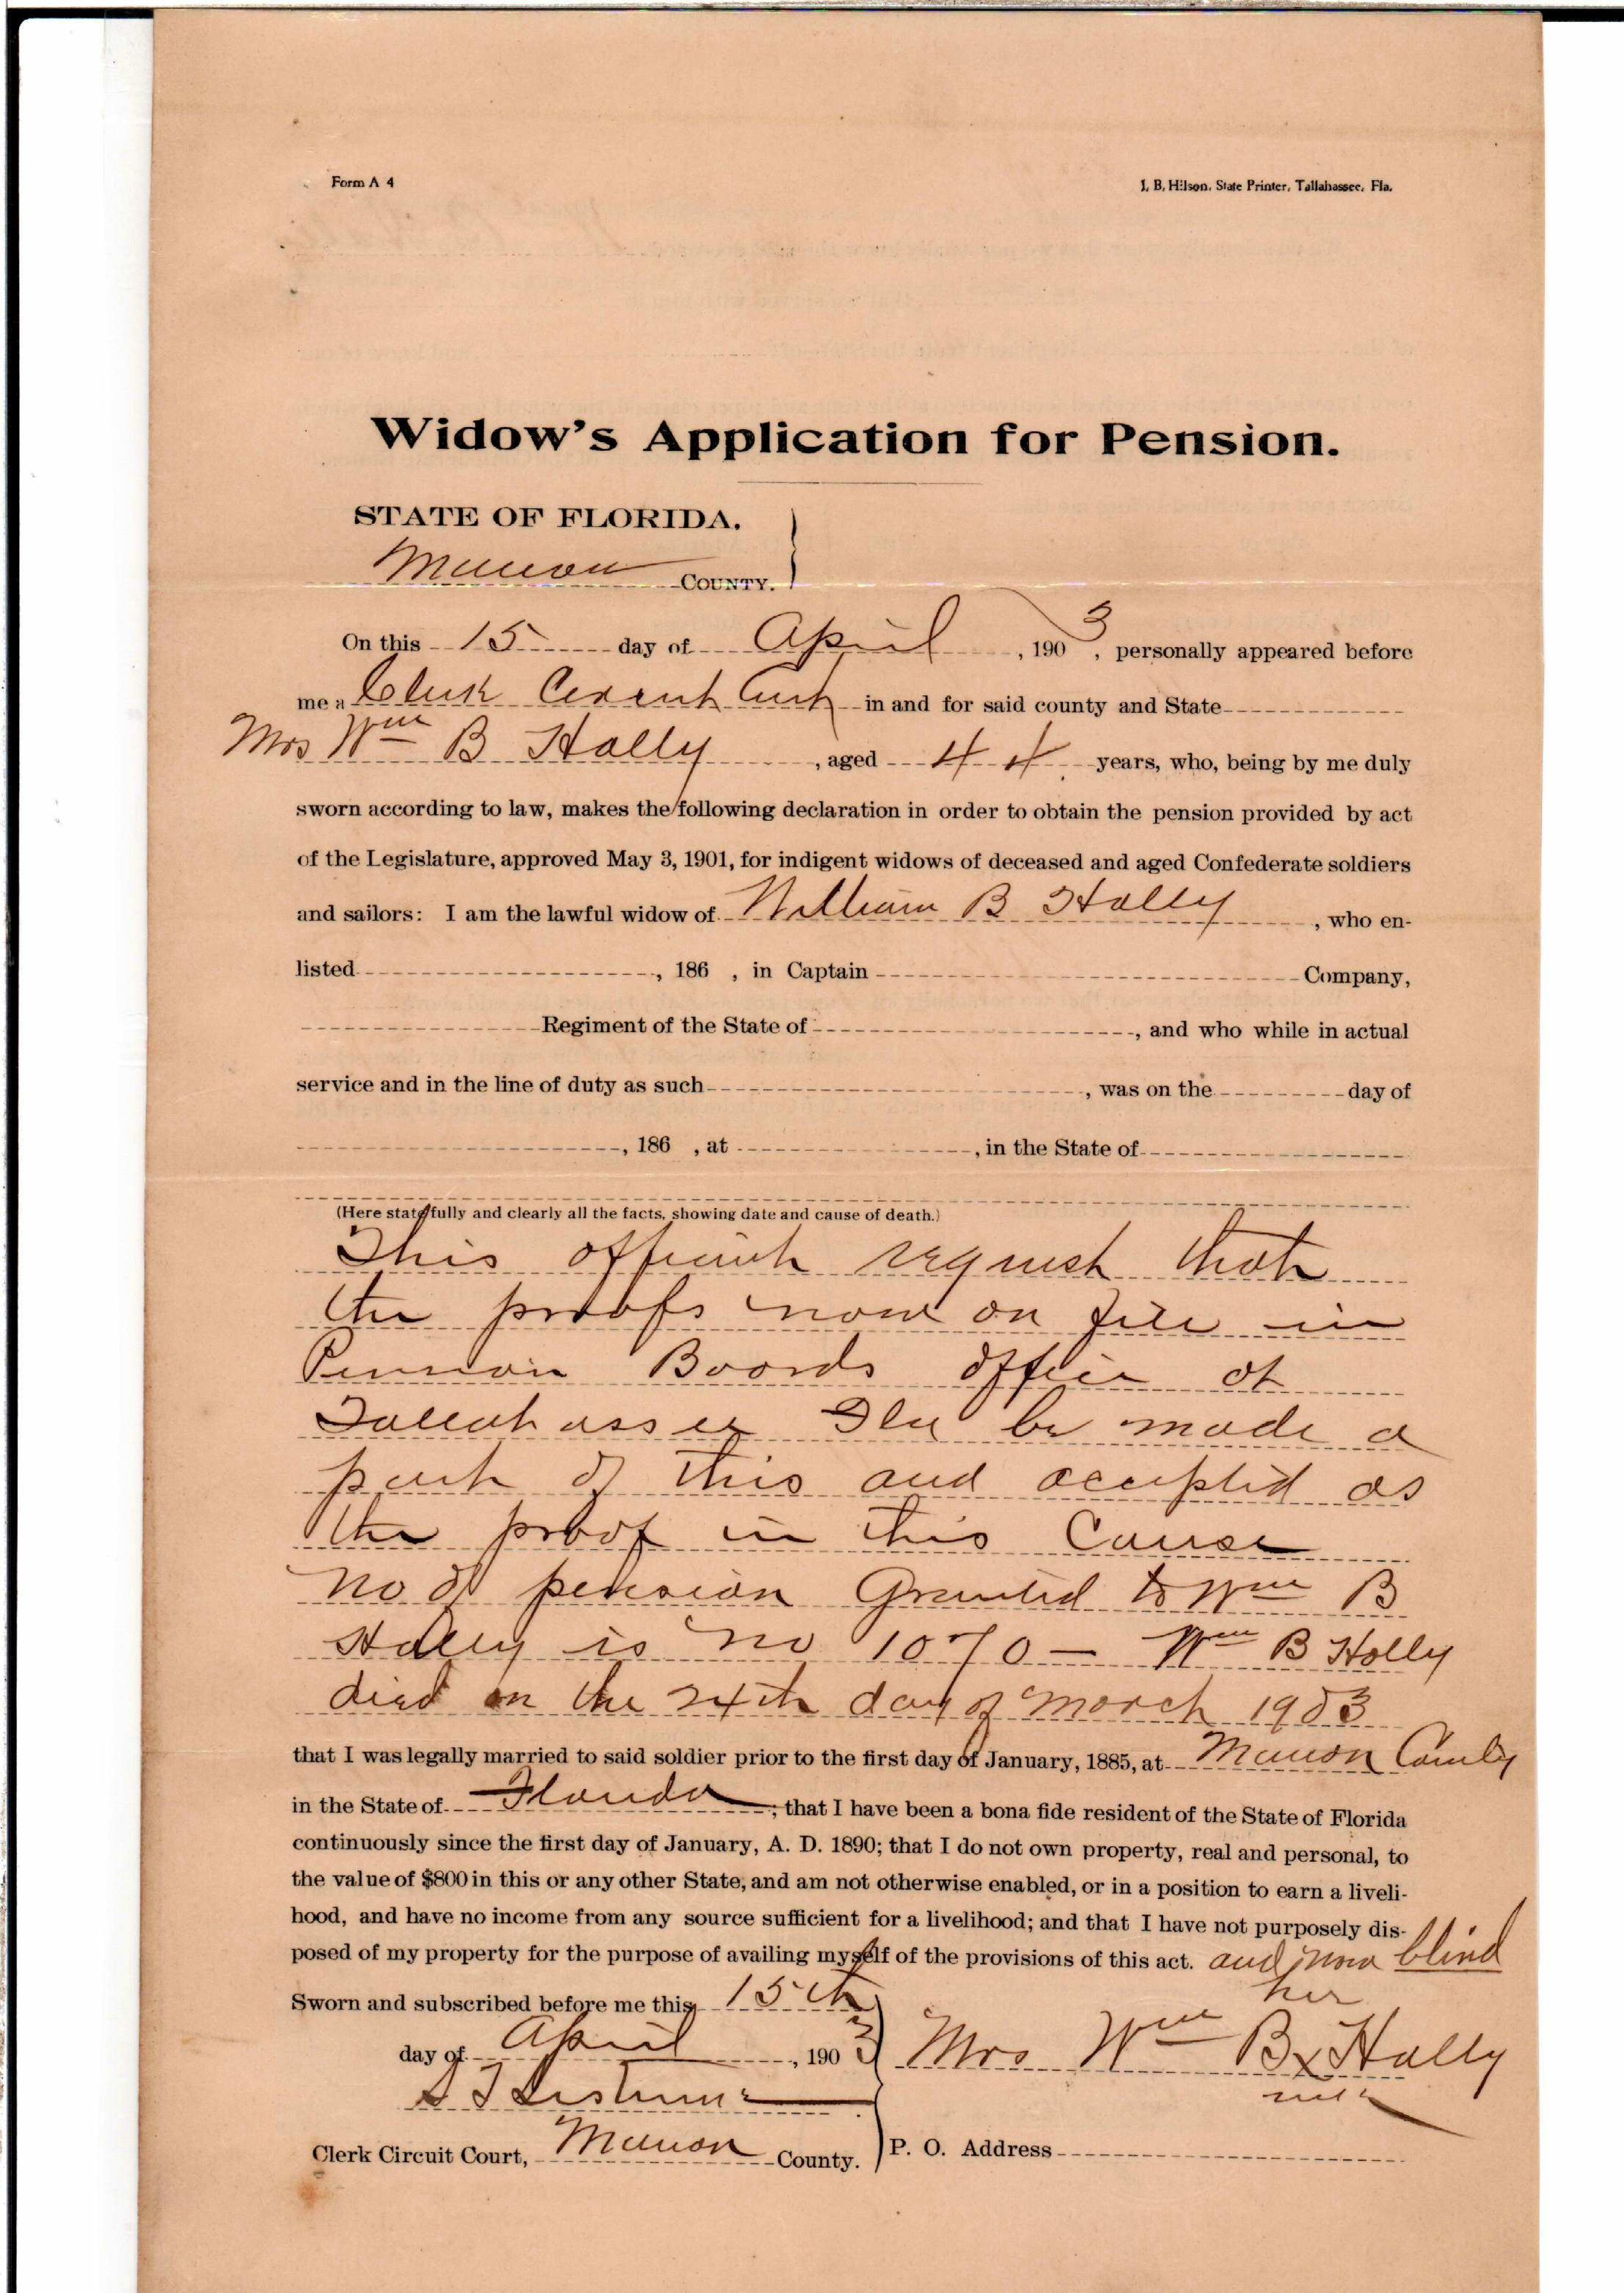 Form A 4
I. B. Hilson, State Printer, Tallahassee, Fla.
Widow's Application for Pension.
STATE OF FLORIDA.
Marion COUNTY.
On this 15 day of April, 1903, personally appeared before
me a Clerk Circuit Court in and for said county and State
Mrs Wm B Holly, aged 44 years, who, being by me duly
sworn according to law, makes the following declaration in order to obtain the pension provided by act
of the Legislature, approved May 3, 1901, for indigent widows of deceased and aged Confederate soldiers
and sailors: I am the lawful widow of William B Holly, who en-
listed, 186 , in Captain Company,
Regiment of the State of , and who while in actual
service and in the line of duty as such , was on the day of
, 186 , at , in the State of
(Here state fully and clearly all the facts, showing date and cause of death.)
This affiant request that
the proofs now on file in
Pension Boards office at
Tallahassee Fla be made a
part of this and accepted as
the proof in this Cause
no of pension Granted to Wm B
Holly is no 1070 — Wm B Holly
died on the 24th day of March 1903
that I was legally married to said soldier prior to the first day of January, 1885, at Marion County
in the State of Florida; that I have been a bona fide resident of the State of Florida
continuously since the first day of January, A. D. 1890; that I do not own property, real and personal, to
the value of $800 in this or any other State, and am not otherwise enabled, or in a position to earn a liveli-
hood, and have no income from any source sufficient for a livelihood; and that I have not purposely dis-
posed of my property for the purpose of availing myself of the provisions of this act. and now blind
Sworn and subscribed before me this 15th
her
day of April, 1903 Mrs Wm B x Holly
mark
Clerk Circuit Court, Marion County. P. O. Address